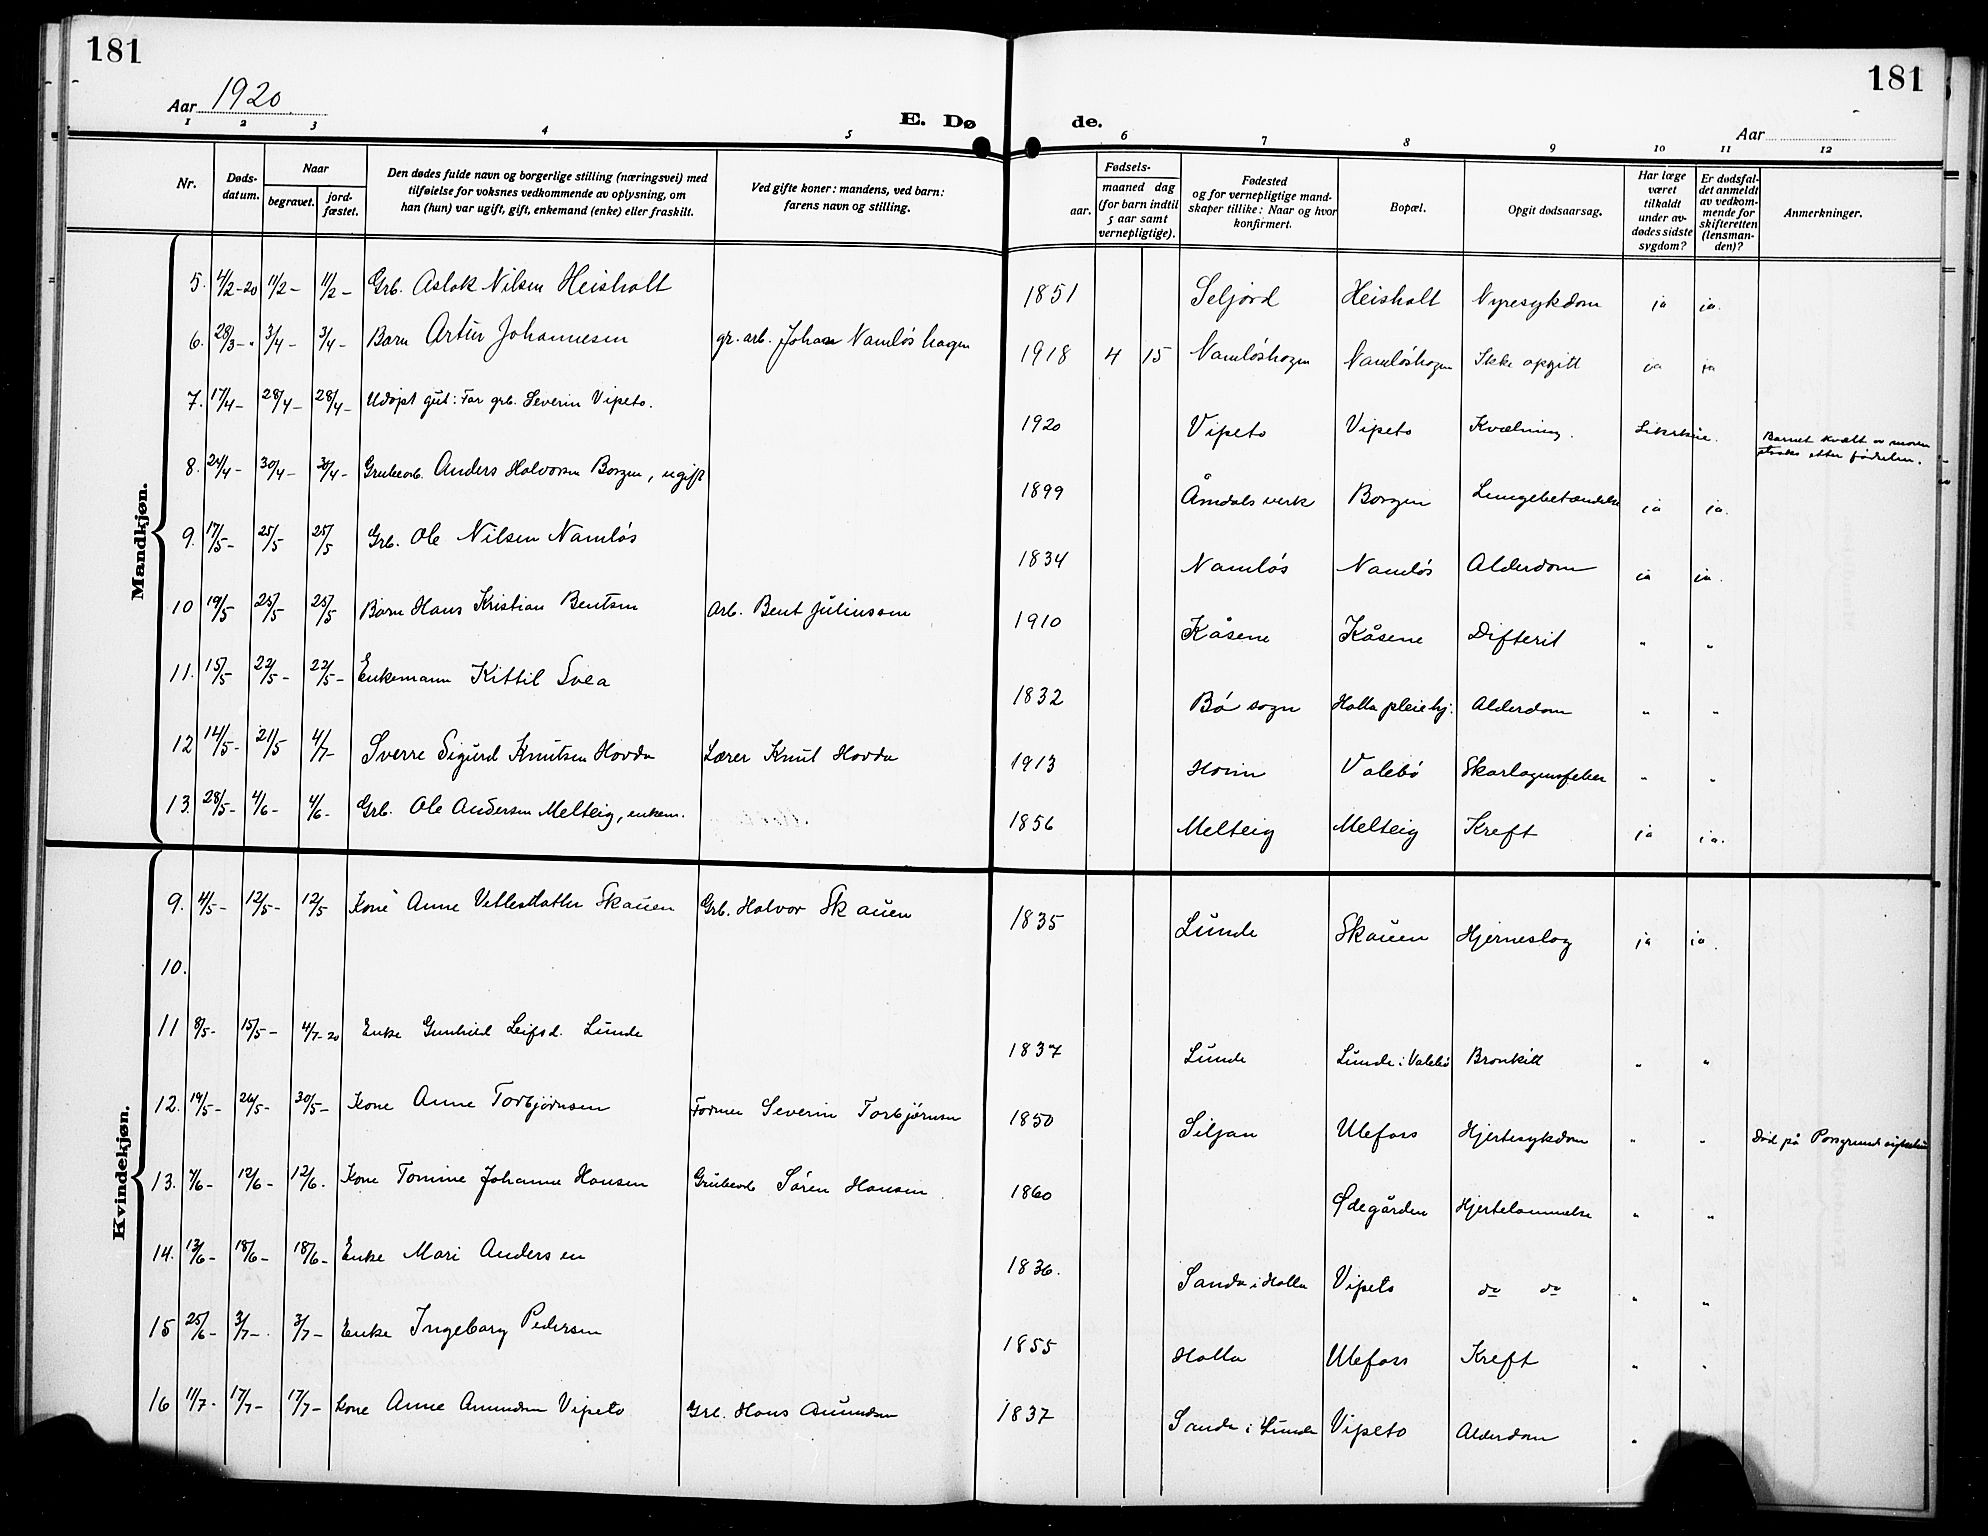 181
181
Aar 1920
E. Dø
de.
Aar
1 2 3 4 5 6 7 8 9 10 11 12
Nr.
Døds-
datum.
Naar
begravet.
jord-
fæstet.
Den dødes fulde navn og borgerlige stilling (næringsvei) med
tilføielse for voksnes vedkommende av oplysning, om
han (hun) var ugift, gift, enkemand (enke) eller fraskilt.
Ved gifte koner: mandens, ved barn:
farens navn og stilling.
Fødsels-
aar.
maaned dag
(for barn indtil
5 aar samt
vernepligtige).
Fødested
og for vernepligtige mand-
skaper tillike: Naar og hvor
konfirmert.
Bopæl.
Opgit dødsaarsag.
Har læge
været
tilkaldt
under av-
dødes sidste
sygdom?
Er dødsfal-
det anmeldt
av vedkom-
mende for
skifteretten
(lensman-
den)?
Anmerkninger.
Mandkjøn.
5. 4/2-20 11/2- 11/2- Grb. Aslak Nilsen Heisholt 1851 Seljord Heisholt Nyresykdom ja ja.
6. 28/3-" 3/4- 3/4- Barn Artur Johannesen gr. arb. Johan Namløshagen 1918 4 15 Namløshagen Namløshagen Ikke opgitt ja ja
7. 17/4- 28/4- 28/4- Udøpt gut: Far grb. Severin Vipeto. 1920 Vipeto Vipeto Kvælning. Barnet kvalt av moren
straks etter fødselen.
8. 24/4- 30/4- 30/4- Grubearb. Anders Halvorsen Borgen, ugift 1899 Åmdals verk Borgen Lungebetændelse ja ja.
9. 17/5- 25/5 25/5 Grb. Ole Nilsen Namløs 1834 Namløs Namløs Alderdom ja ja.
10 19/5 25/5 25/5 Barn Hans Kristian Bentsen Arb. Bent Juliussen 1910 Kåsene Kåsene Difterit " "
11. 15/5 22/5- 22/5- Enkemann Kittil Svea 1832 Bø sogn Holla pleiehj. Alderdom " "
12 14/5- 21/5 4/7- Sverre Sigurd Knutsen Hovda Lærer Knut Hovda 1913 Valebø Skarlagensfeber " "
13. 28/5- 4/6- 4/6- Grb. Ole Andersen Melteig, enkem. 1856 Melteig Melteig Kreft ja ja.
Kvindekjøn.
9. 4/5- 12/5- 12/5 Kone Anne Vetlesdatter Skauen Grb. Halvor Skauen 1835 Lunde Skauen Hjerneslag ja ja.
10.
11 8/5- 15/5- 4/7-20 Enke Gunhild Leifsd. Lunde 1837 Lunde Lunde i Valebø Bronkitt " "
12. 19/5- 26/5- 30/5- Kone Anne Torbjørnsen Former Severin Torbjørnsen 1850 Siljan Ulefoss Hjertesykdom " " Død på Porsgrunds sykehus
13. 7/6- 12/6- 12/6. Kone Tomine Johanne Hansen Grubearb Søren Hansen 1860 Ødegården Hjertelammelse " "
14. 13/6- 18/6- 18/6- Enke Mari Andersen 1836. Sanda i Holla Vipeto do do " "
15 25/6- 3/7-. 3/7- Enke Ingeborg Pedersen 1855 Holla Ulefoss Kreft " "
16 11/7- 17/7- 17/7- Kone Anne Amundsen Vipeto Grb. Hans Amundsen 1837 Sanda i Lunde Vipeto Alderdom "